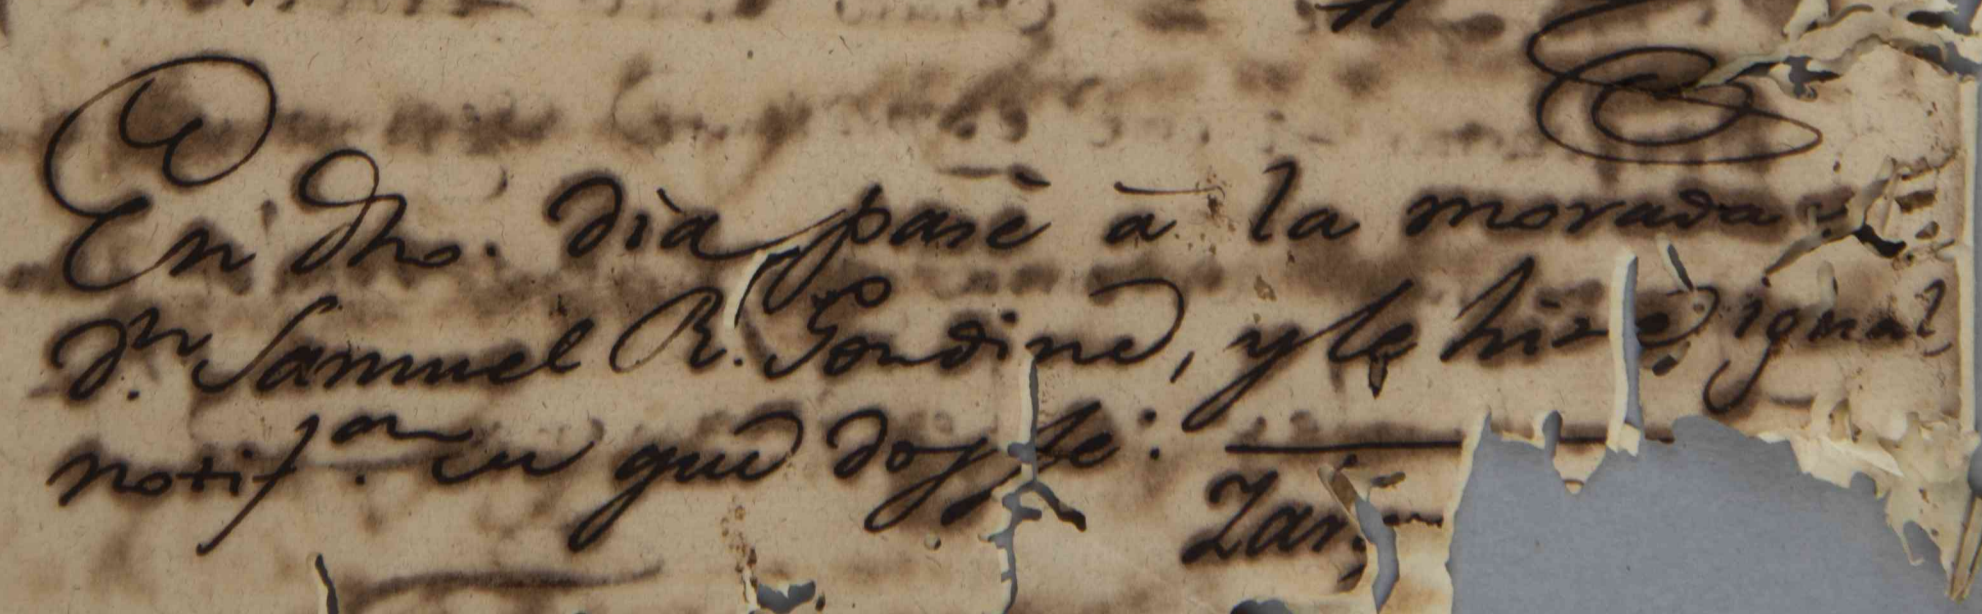 En dho. dia pasè à la morada
Dn. Samuel R. Gondine, y le hise igual
notifon. en que doy fe: